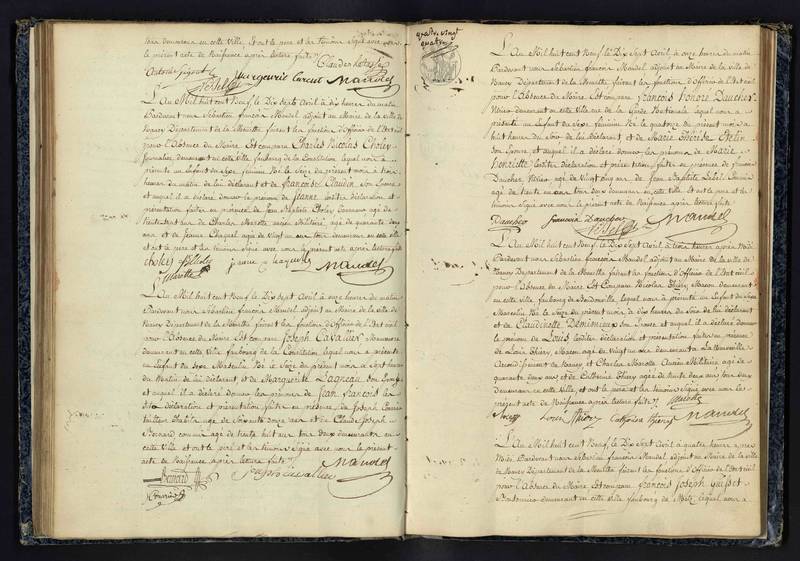 tous demeurant en cette Ville, Et ont le pere et les témoins Signé avec nous
le présent acte de Naissance après lecture faite
Claude
Antoine
Marguerite Mandel
L'An Mil huit cent Neuf, le Dix Sept Avril à dix heures du matin
Pardevant nous Sébastien françois Mandel adjoint au Maire de la ville de
Nancy Département de la Meurthe faisant les fonctions d'Officier de l'Etat civil
pour l'absence du Maire Est comparu Charles Nicolas Choley
Journalier demeurant en cette ville, faubourg de la Constitution lequel nous a
présenté un Enfant du Sexe féminin Né le Seize du présent mois à trois
heures du matin de lui déclarant et de françoise Claudin Son Epouse
et auquel il a déclaré donner le prénom de Jeanne lesdites déclaration et
présentation faites en présence de Jean Baptiste Choley agé de
ans et de Charles Marotte ancien Militaire, agé de quarante deux
ans et de Jeanne agée de Vingt un ans tous demeurant en cette ville
et ont le père et les témoins Signé avec nous le présent acte après lecture faite
choley
Marotte Mandel
L'An Mil huit cent Neuf, le Dix Sept Avril à onze heures du matin
Pardevant nous Sébastien françois Mandel adjoint au Maire de la ville de
Nancy Département de la Meurthe faisant les fonctions d'Officier de l'Etat civil
pour l'absence du Maire Est comparu Joseph Cavallier
demeurant en cette Ville faubourg de la Constitution lequel nous a présenté
un Enfant du Sexe Masculin Né le Seize du présent mois à Sept heures
du Matin de lui déclarant et de Marguerite Lagneau Son Epouse
et auquel il a déclaré donner les prénoms de Jean françois les
dites déclaration et présentation faites en présence de Joseph
tailleur d'habits agé de ans et de Claude Joseph
Bernard commis agé de trente huit ans tous deux demeurant en
cette Ville et ont le père et les témoins Signé avec nous le présent
acte de Naissance après lecture faite
Bernard Mandel
joseph cavallier
quatre vingt
quatre
L'An Mil huit cent Neuf, le Dix Sept Avril, à onze heures du matin
Pardevant nous Sébastien françois Mandel adjoint au Maire de la ville de
Nancy Département de la Meurthe faisant les fonctions d'Officier de l'Etat civil
pour l'absence du Maire Est comparu françois honoré Daucher
demeurant en cette ville rue de la Garde Nationale lequel nous a
présenté un Enfant du Sexe féminin Né le quatorze du présent mois à
huit heures du Soir de lui déclarant et de Marie Thérèse
Son Epouse et auquel il a déclaré donner les prénoms de Marie
henriette lesdites déclaration et présentation faites en présence de françois
Daucher agé de vingt cinq ans de Jean Baptiste
agé de trente un ans tous deux demeurant en cette ville Et ont le père et les
témoins Signé avec nous le présent acte de Naissance après lecture faite
Daucher françois Daucher Mandel
L'An Mil huit cent Neuf, le Dix Sept Avril à trois heures après Midi
Pardevant nous Sébastien françois Mandel adjoint au Maire de la Ville de
Nancy Département de la Meurthe faisant les fonctions d'Officier de l'Etat civil
pour l'absence du Maire Est Comparu Nicolas Thiéry Macon demeurant
en cette ville, faubourg de lequel nous a présenté un Enfant du Sexe
Masculin Né le Seize du présent mois, à dix heures du Soir de lui déclarant
et de Claudinette Son Epouse et auquel il a déclaré donner
le prénom de Louis lesdites déclaration et présentation faites en présence
de Louis Thiéry, Macon agé de vingt six ans demeurant à
Arrondissement de Nancy et Charles Marotte Ancien Militaire agé de
quarante deux ans et de Catherine Thiéry agée de trente deux ans tous deux
demeurant en cette ville, et ont le père et les témoins Signé avec nous le
présent acte de Naissance après lecture faite Marotte
Louis thiery Catherine thiery Mandel
L'An Mil huit cent Neuf, le Dix Sept Avril à quatre heures après
Midi, Pardevant nous Sébastien françois Mandel adjoint au Maire de la ville
de Nancy Département de la Meurthe faisant les fonctions d'Officier de l'Etat civil
pour l'absence du Maire Est comparu françois Joseph
demeurant en cette ville, faubourg de Metz, lequel nous a